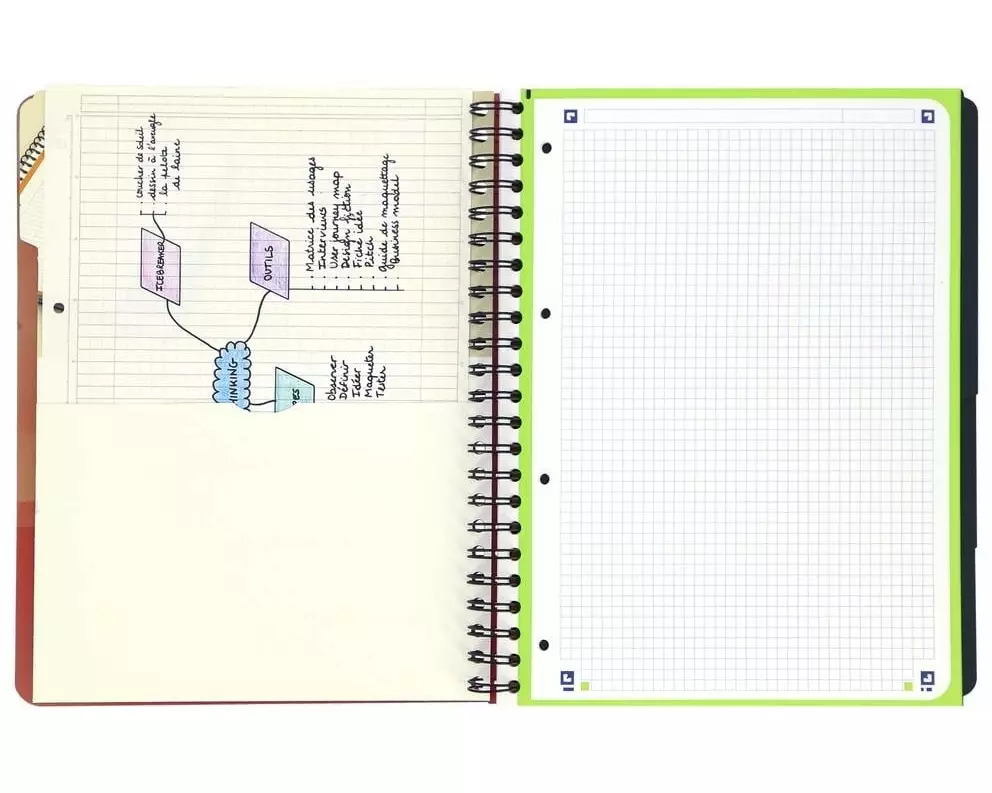 . coucher de soleil
. dessin à l'aveugle
. la pelote
de laine
ICEBREAKER
OUTILS
. Matrice des usages
. Interviews
. User journey map
. Design fiction
. Fiche idée
. Pitch
. Guide de maquettage
. Business model
HINKING
PES
Observer
Définir
Idéer
Maqueter
Tester